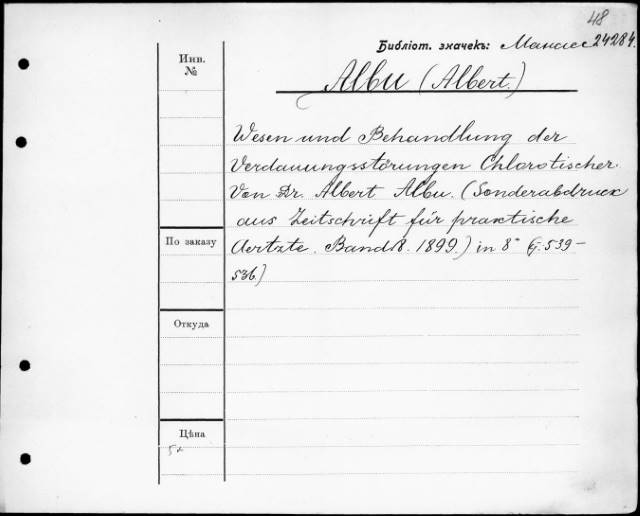 48
Библіот. значекъ: Манасс 24284.
Инв.
№
Albu (Albert.)
Wesen und Behandlung der
Verdauungsstörungen Chlorotischer.
Von Dr. Albert Albu. (Sonderabdruck
aus Zeitschrift für praktische
Aertzte. Band 8. 1899.) in 8° S. 539-
По заказу
536.)
Откуда
Цѣна